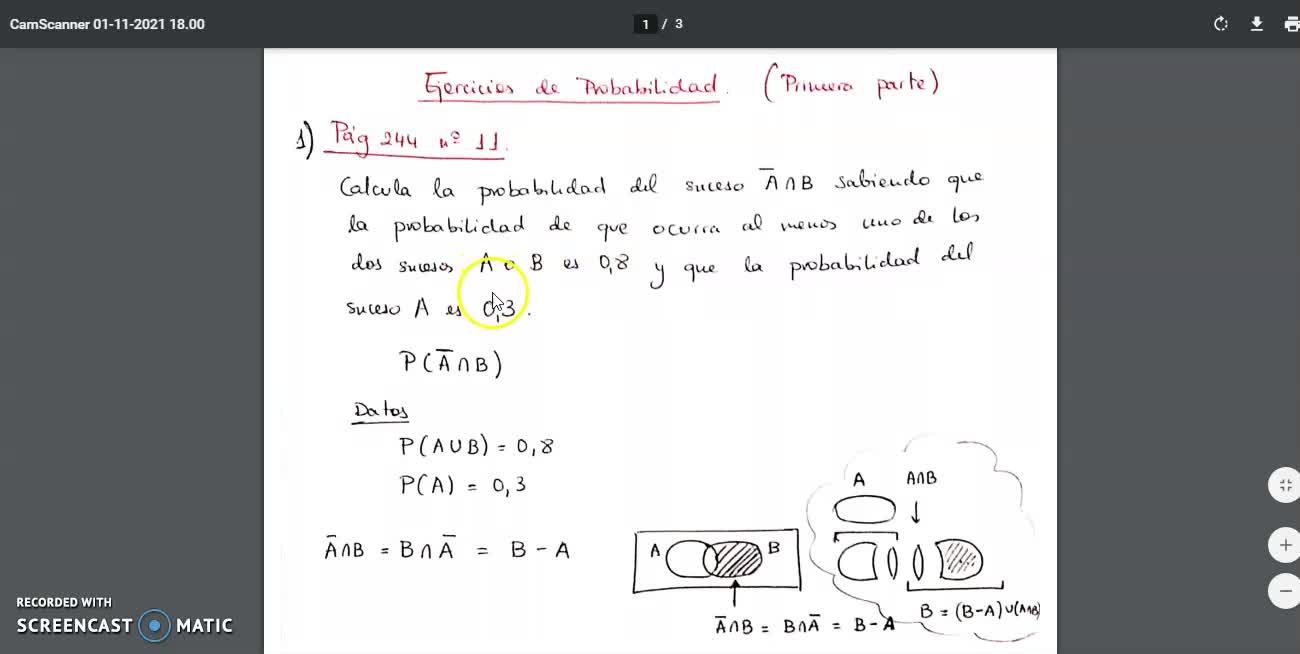 CamScanner 01-11-2021 18.00
1 / 3
Ejercicios de Probabilidad. (Primera parte)
1) Pág 244 nº 11.
Calcula la probabilidad del suceso A̅∩B sabiendo que
la probabilidad de que ocurra al menos uno de los
dos sucesos A o B es 0,8 y que la probabilidad del
suceso A es 0,3.
P(A̅∩B)
Datos
P(A∪B) = 0,8
P(A) = 0,3
A̅∩B = B∩A̅ = B - A
A B
A̅∩B = B∩A̅ = B - A
A A∩B
B = (B-A)∪(A∩B)
RECORDED WITH
SCREENCAST MATIC